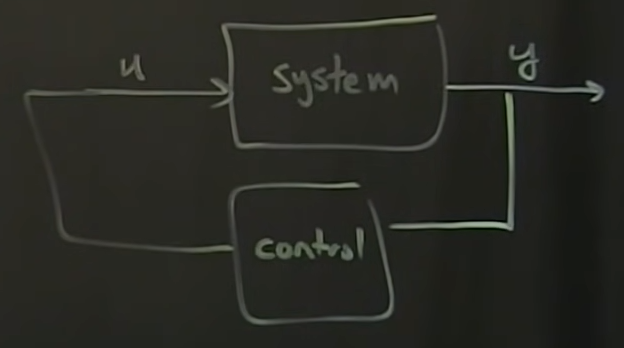 u
system
y
control